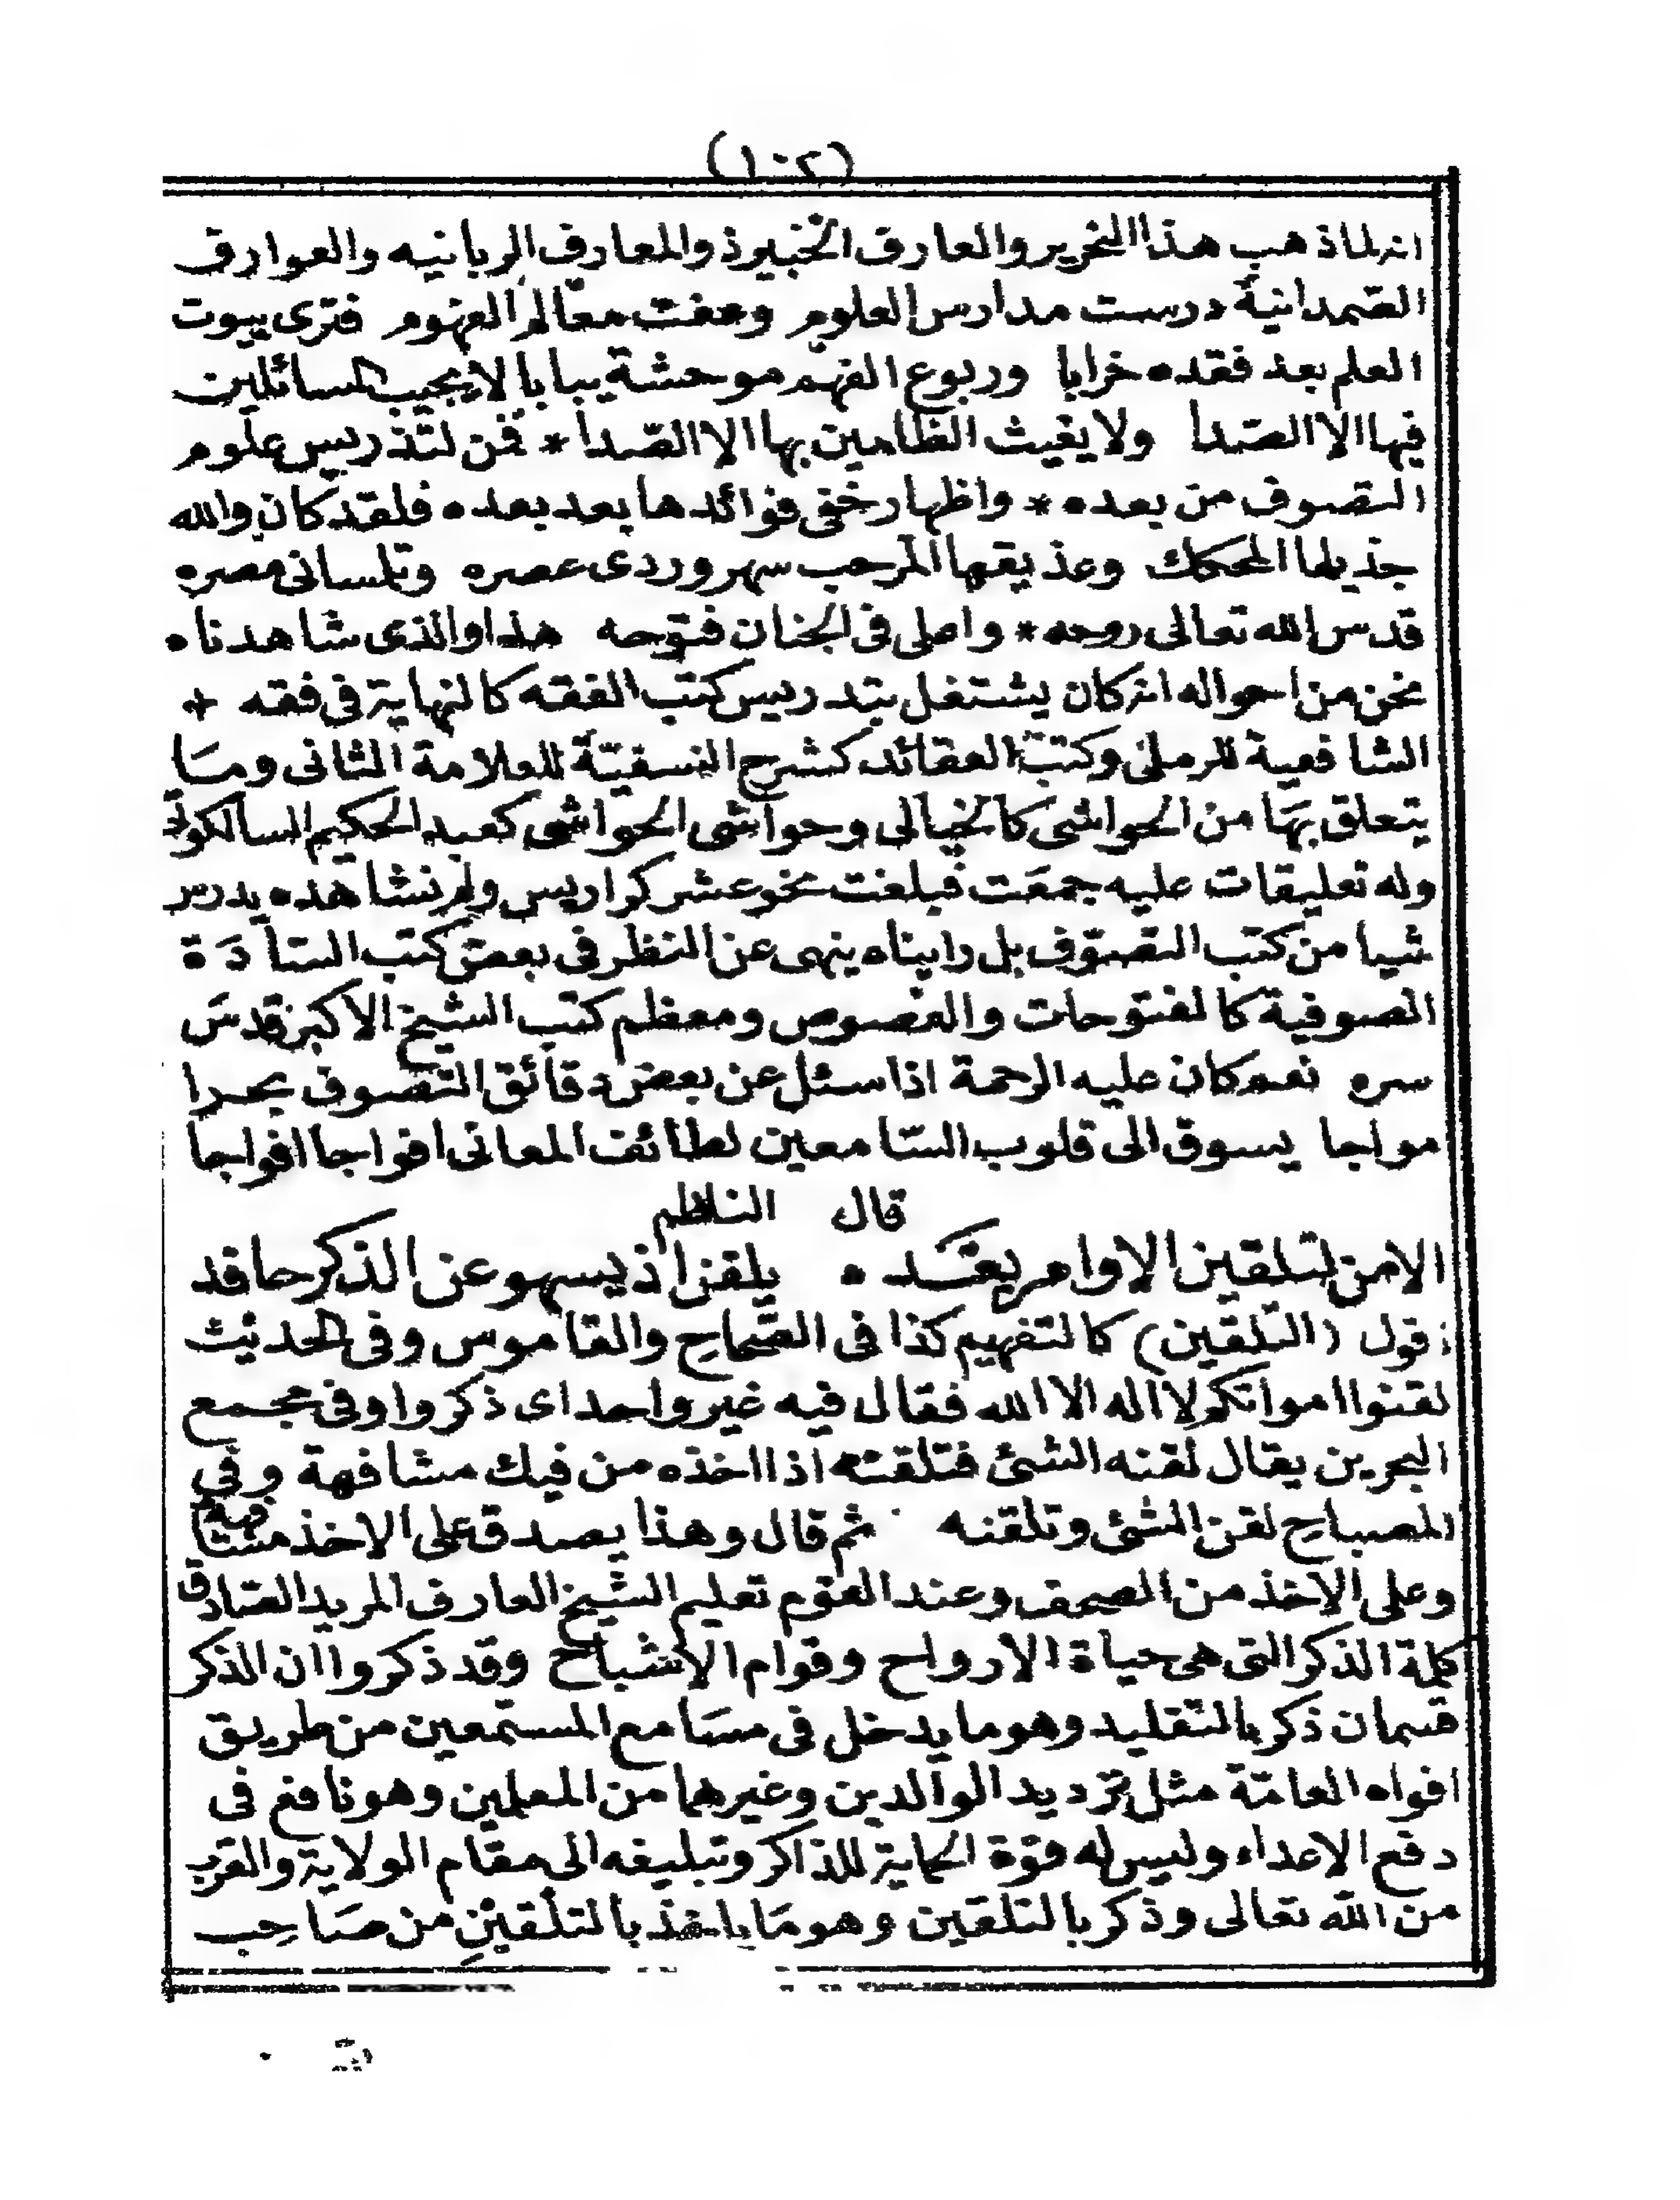 (١٠٢)
انه لما ذهب هذا النحرير والعارف الخبير ذو المعارف الربانيه والعوارف
الصمدانية درست مدارس العلوم وعفت معالم الفهوم فترى بيوت
العلم بعد فقده خرابا وربوع الفهم موحشة يبابا لا يجيب السائلين
فيها الا الصدا ولا يغيث الظامين بها الا الصّدا * فمن لتدريس علوم
التصوف من بعده * واظهار خفى فوائدها بعد بعده * فلقد كان والله
جذيلها المحكك وعذيقها المرجب سهروردى عصره وتلسانى مصره
قدس الله تعالى روحه * واصلى فى الجنان فتوحه هذا والذى شاهدناه
نحن من احواله انه كان يشتغل بتدريس كتب الفقه كالنهاية فى فقه +
الشافعية للرملى وكتب العقائد كشرح النسفيّة للعلامة الثانى ومَا
يتعلق بهَا من الحواشى كالخيالى وحواشى الحواشى كعبد الحكيم السالكوتى
وله تعليقات عليه جمعَت فبلغت نحو عشر كراريس ولم نشاهده يدرس
شيا من كتب التصوّف بل رايناه ينهى عن النظر فى بعض كتب السّادَة
الصوفية كالفتوحات والفصوص ومعظم كتب الشيخ الاكبر قدسَ
سره نعم كان عليه الرحمة اذا سئل عن بعض دقائق التصوف بحرا
مواجا يسوق الى قلوب السّامعين لطائف المعانى افواجا افواجا
قال الناظم
الا من لتلقين الاوامر بعَده * يلقن اذ يسهو عن الذكر حافد
اقول (التلقين) كالتفهيم كذا فى الصّحاح والقاموس وفى الحديث
لقنوا امواتكم لا اله الا الله فقال فيه غير واحد اى ذكروا وفى مجمع
البحرين يقال لقنه الشئ فتلقنه اذا اخذه من فيك مشافهة وفى
المصباح لقن الشئ وتلقنه ثم قال وهذا يصدق على الاخذ مشافهة
وعلى الاخذ من المصحف وعند القوم تعليم الشيخ العارف المريد الصّادق
كلمة الذكر التى هى حياة الارواح وقوام الاشباح وقد ذكروا ان الذكر
قسمان ذكر بالتقليد وهو ما يدخل فى مسَامع المستمعين من طريق
افواه العامّة مثل ترديد الوالدين وغيرهما من المعلمين وهو نافع فى
دفع الاعداء وليس له قوّة الحماية للذاكر وتبليغه الى مقام الولاية والقرب
من الله تعالى وذكر بالتلقين وهو مَا ياخذ بالتلقين من صَاحِب